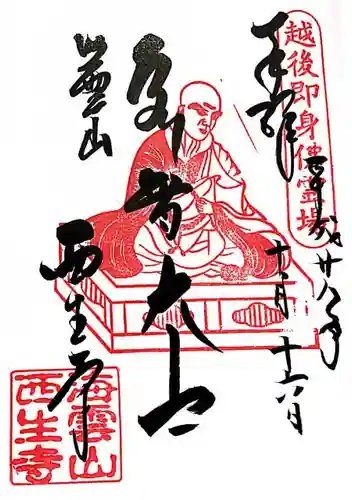 越後即身佛霊場
奉拝
平成廿八年
十二月十六日
弘智大士
海雲山
西生寺
海雲山
西生寺